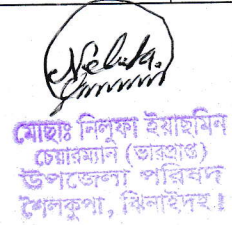 মোছাঃ নিলুফা ইয়াছমিন
চেয়ারম্যান (ভারপ্রাপ্ত)
উপজেলা পরিষদ
শৈলকুপা, ঝিনাইদহ।